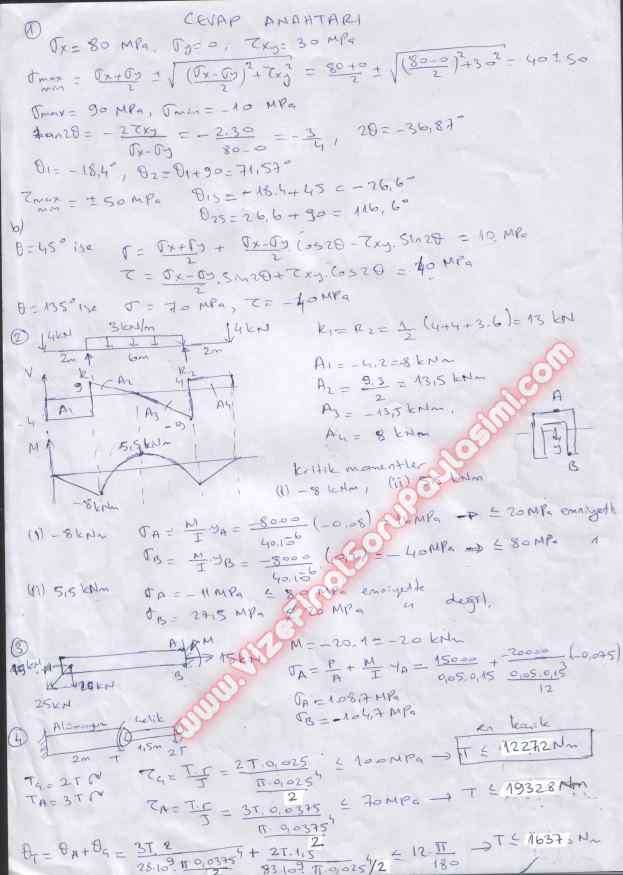 CEVAP ANAHTARI
① σx = 80 MPa, σy = 0, τxy = 30 MPa
σmax/min = (σx+σy)/2 ± √(((σx-σy)/2)² + τxy²) = (80+0)/2 ± √(((80-0)/2)² + 30²) = 40 ± 50
σmax = 90 MPa, σmin = -10 MPa
tan2θ = - 2τxy/(σx-σy) = - 2.30/(80-0) = - 3/4, 2θ = -36,87°
θ1 = -18,4°, θ2 = θ1+90 = 71,57°
τmax/min = ± 50 MPa θ1s = -18.4+45 = -26,6°
θ2s = 26,6 + 90 = 116,6°
b)
θ=45° ise σ = (σx+σy)/2 + (σx-σy)/2 Cos2θ - τxy.Sin2θ = 10 MPa
τ = (σx-σy)/2 . Sin2θ + τxy.Cos2θ = 40 MPa
θ = 135° ise σ = 70 MPa, τ = -40 MPa
② 4kN 3kN/m 4kN
2m 6m 2m
R1 = R2 = 1/2 (4+4+3.6) = 13 kN
V 9 R1 A2 4 R2
A1 A3 A4
-4 -9
A1 = -4.2 = -8 kNm
A2 = 9.3/2 = 13,5 kNm
A3 = -13,5 kNm,
A4 = 8 kNm
A
y
B
M 5,5 kNm
-8kNm
kritik momentler
(i) -8 kNm, (ii) 5,5 kNm
(i) -8 kNm σA = M/I yA = -8000/40.10⁻⁶ (-0,08) MPa → ≤ 20 MPa
σB = M/I yB = -8000/40.10⁻⁶ = -40MPa → ≤ 80 MPa
(ii) 5,5 kNm σA = -11 MPa ≤ 80 MPa emniyette
σB = 27,5 MPa 20 MPa " değil.
③ A M 15kN
B
25kN
M = -20.1 = -20 kNm
σA = P/A + M/I yA = 15000/0,05.0,15 + -20000/(0,05.0,15³/12) (-0,075)
σA = 108,7 MPa
σB = -104,7 MPa
④ Alüminyum Çelik
2m T 1,5m 2T
en küçük
τç = T.r/J = 2T.0,025/(π.0,025⁴/2) ≤ 100MPa → T ≤ 1227,2 Nm
Tç = 2T
TA = 3T
τA = T.r/J = 3T.0,0375/(π.0,0375⁴/2) ≤ 70MPa → T ≤ 1932,8 Nm
θT = θA + θç = 3T.2/(28.10⁹.π.0,0375⁴/2) + 2T.1,5/(83.10⁹.π.0,025⁴/2) ≤ 12.π/180 → T ≤ Nm
www.VizeFinalSoruPaylasimi.com